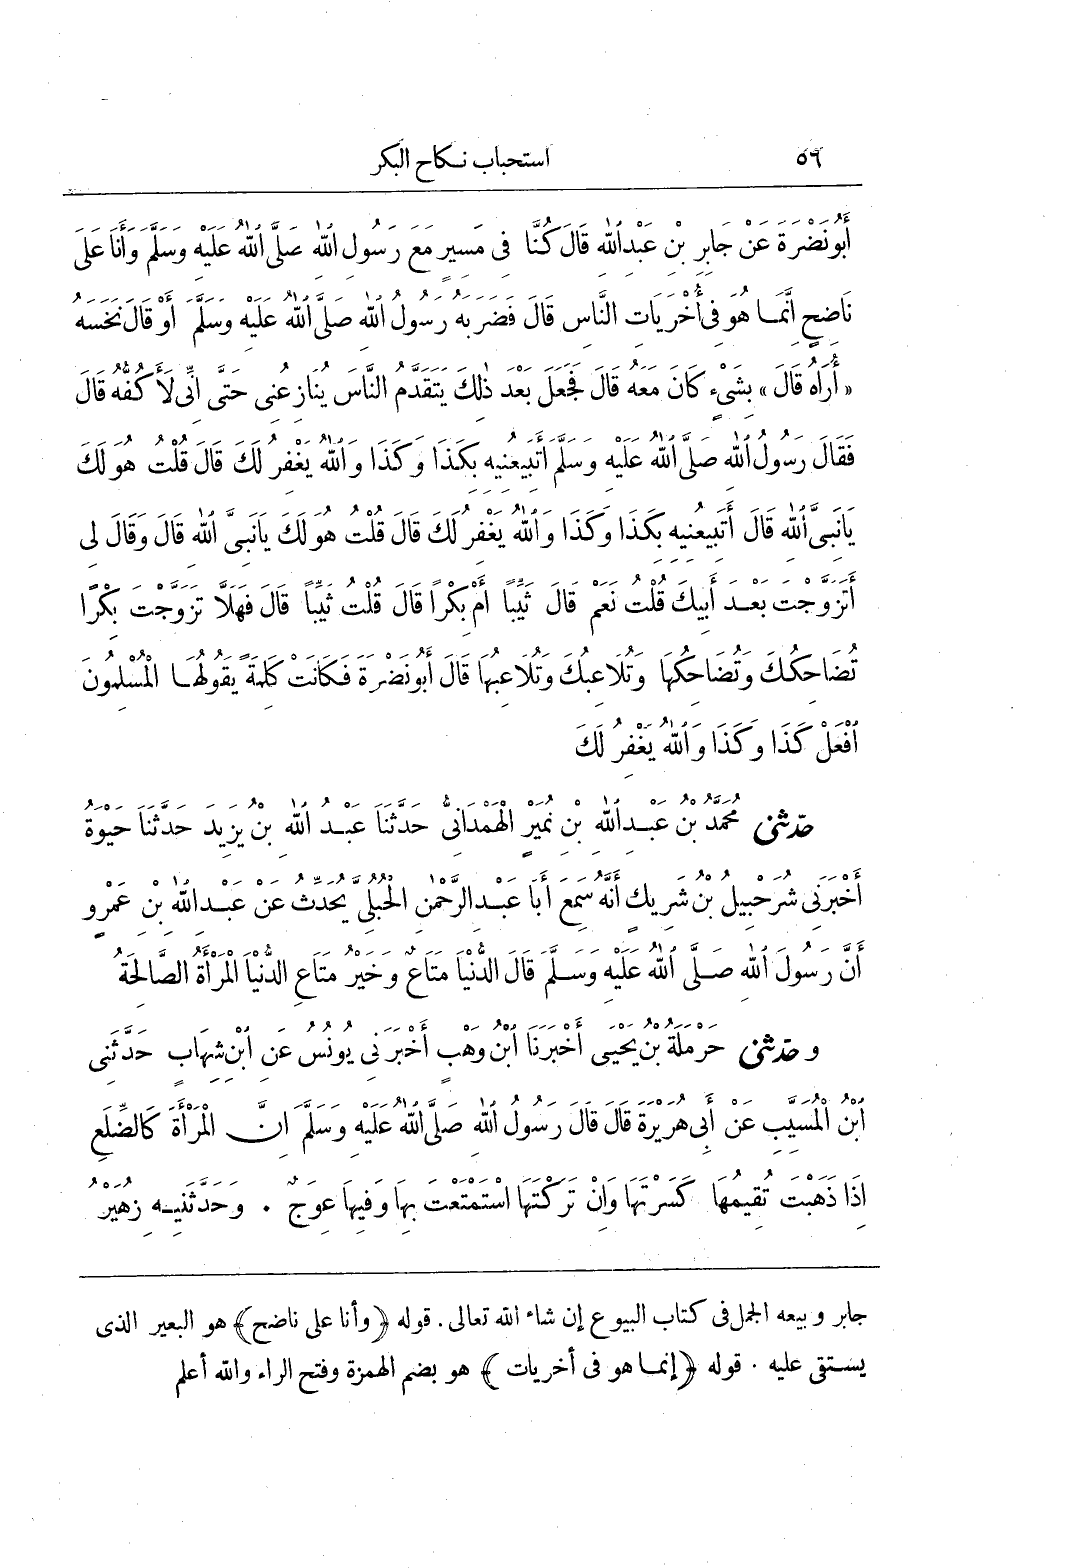 ٥٦ استحباب نكاح البكر
أَبُو نَضْرَةَ عَنْ جَابِرِ بْنِ عَبْدِ اللهِ قَالَ كُنَّا فِى مَسِيرٍ مَعَ رَسُولِ اللهِ صَلَّى اللهُ عَلَيْهِ وَسَلَّمَ وَأَنَا عَلَى
نَاضِحٍ إِنَّمَا هُوَ فِى أُخْرَيَاتِ النَّاسِ قَالَ فَضَرَبَهُ رَسُولُ اللهِ صَلَّى اللهُ عَلَيْهِ وَسَلَّمَ أَوْ قَالَ نَخَسَهُ
« أُرَاهُ قَالَ » بِشَىْءٍ كَانَ مَعَهُ قَالَ فَجَعَلَ بَعْدَ ذٰلِكَ يَتَقَدَّمُ النَّاسَ يُنَازِعُنِى حَتَّى إِنِّى لَأَكُفُّهُ قَالَ
فَقَالَ رَسُولُ اللهِ صَلَّى اللهُ عَلَيْهِ وَسَلَّمَ أَتَبِيعُنِيهِ بِكَذَا وَكَذَا وَاللهُ يَغْفِرُ لَكَ قَالَ قُلْتُ هُوَ لَكَ
يَا نَبِىَّ اللهِ قَالَ أَتَبِيعُنِيهِ بِكَذَا وَكَذَا وَاللهُ يَغْفِرُ لَكَ قَالَ قُلْتُ هُوَ لَكَ يَا نَبِىَّ اللهِ قَالَ وَقَالَ لِى
أَتَزَوَّجْتَ بَعْدَ أَبِيكَ قُلْتُ نَعَمْ قَالَ ثَيِّبًا أَمْ بِكْرًا قَالَ قُلْتُ ثَيِّبًا قَالَ فَهَلَّا تَزَوَّجْتَ بِكْرًا
تُضَاحِكُكَ وَتُضَاحِكُهَا وَتُلَاعِبُكَ وَتُلَاعِبُهَا قَالَ أَبُو نَضْرَةَ فَكَانَتْ كَلِمَةً يَقُولُهَا الْمُسْلِمُونَ
افْعَلْ كَذَا وَكَذَا وَاللهُ يَغْفِرُ لَكَ
حدثنى مُحَمَّدُ بْنُ عَبْدِ اللهِ بْنِ نُمَيْرٍ الْهَمْدَانِىُّ حَدَّثَنَا عَبْدُ اللهِ بْنُ يَزِيدَ حَدَّثَنَا حَيْوَةُ
أَخْبَرَنِى شُرَحْبِيلُ بْنُ شَرِيكٍ أَنَّهُ سَمِعَ أَبَا عَبْدِ الرَّحْمٰنِ الْحُبُلِىَّ يُحَدِّثُ عَنْ عَبْدِ اللهِ بْنِ عَمْرٍو
أَنَّ رَسُولَ اللهِ صَلَّى اللهُ عَلَيْهِ وَسَلَّمَ قَالَ الدُّنْيَا مَتَاعٌ وَخَيْرُ مَتَاعِ الدُّنْيَا الْمَرْأَةُ الصَّالِحَةُ
و حدثنى حَرْمَلَةُ بْنُ يَحْيَى أَخْبَرَنَا ابْنُ وَهْبٍ أَخْبَرَنِى يُونُسُ عَنِ ابْنِ شِهَابٍ حَدَّثَنِى
ابْنُ الْمُسَيَّبِ عَنْ أَبِى هُرَيْرَةَ قَالَ قَالَ رَسُولُ اللهِ صَلَّى اللهُ عَلَيْهِ وَسَلَّمَ إِنَّ الْمَرْأَةَ كَالضِّلَعِ
إِذَا ذَهَبْتَ تُقِيمُهَا كَسَرْتَهَا وَإِنْ تَرَكْتَهَا اسْتَمْتَعْتَ بِهَا وَفِيهَا عِوَجٌ . وَحَدَّثَنِيهِ زُهَيْرُ
جابر وبيعه الجمل فى كتاب البيوع إن شاء الله تعالى. قوله ﴿وأنا على ناضح﴾ هو البعير الذى
يستقى عليه . قوله ﴿إنما هو فى أخريات﴾ هو بضم الهمزة وفتح الراء والله أعلم